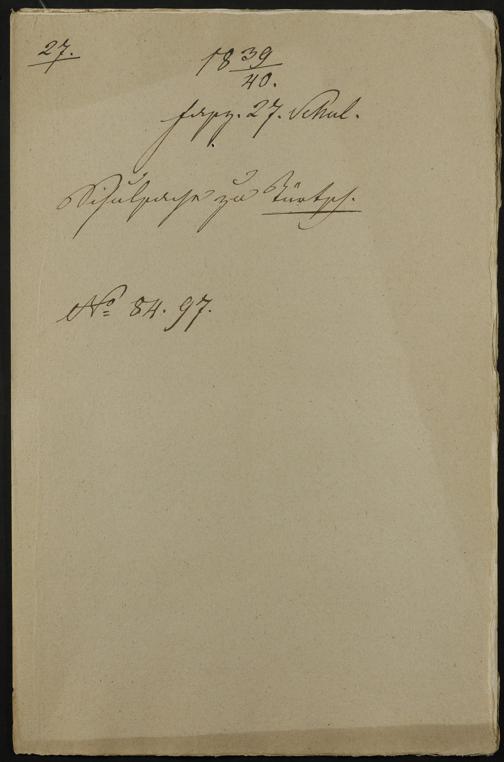 27.
18 39/40.
fasz. 27. Schul.
Schulsache zu
No 84. 97.